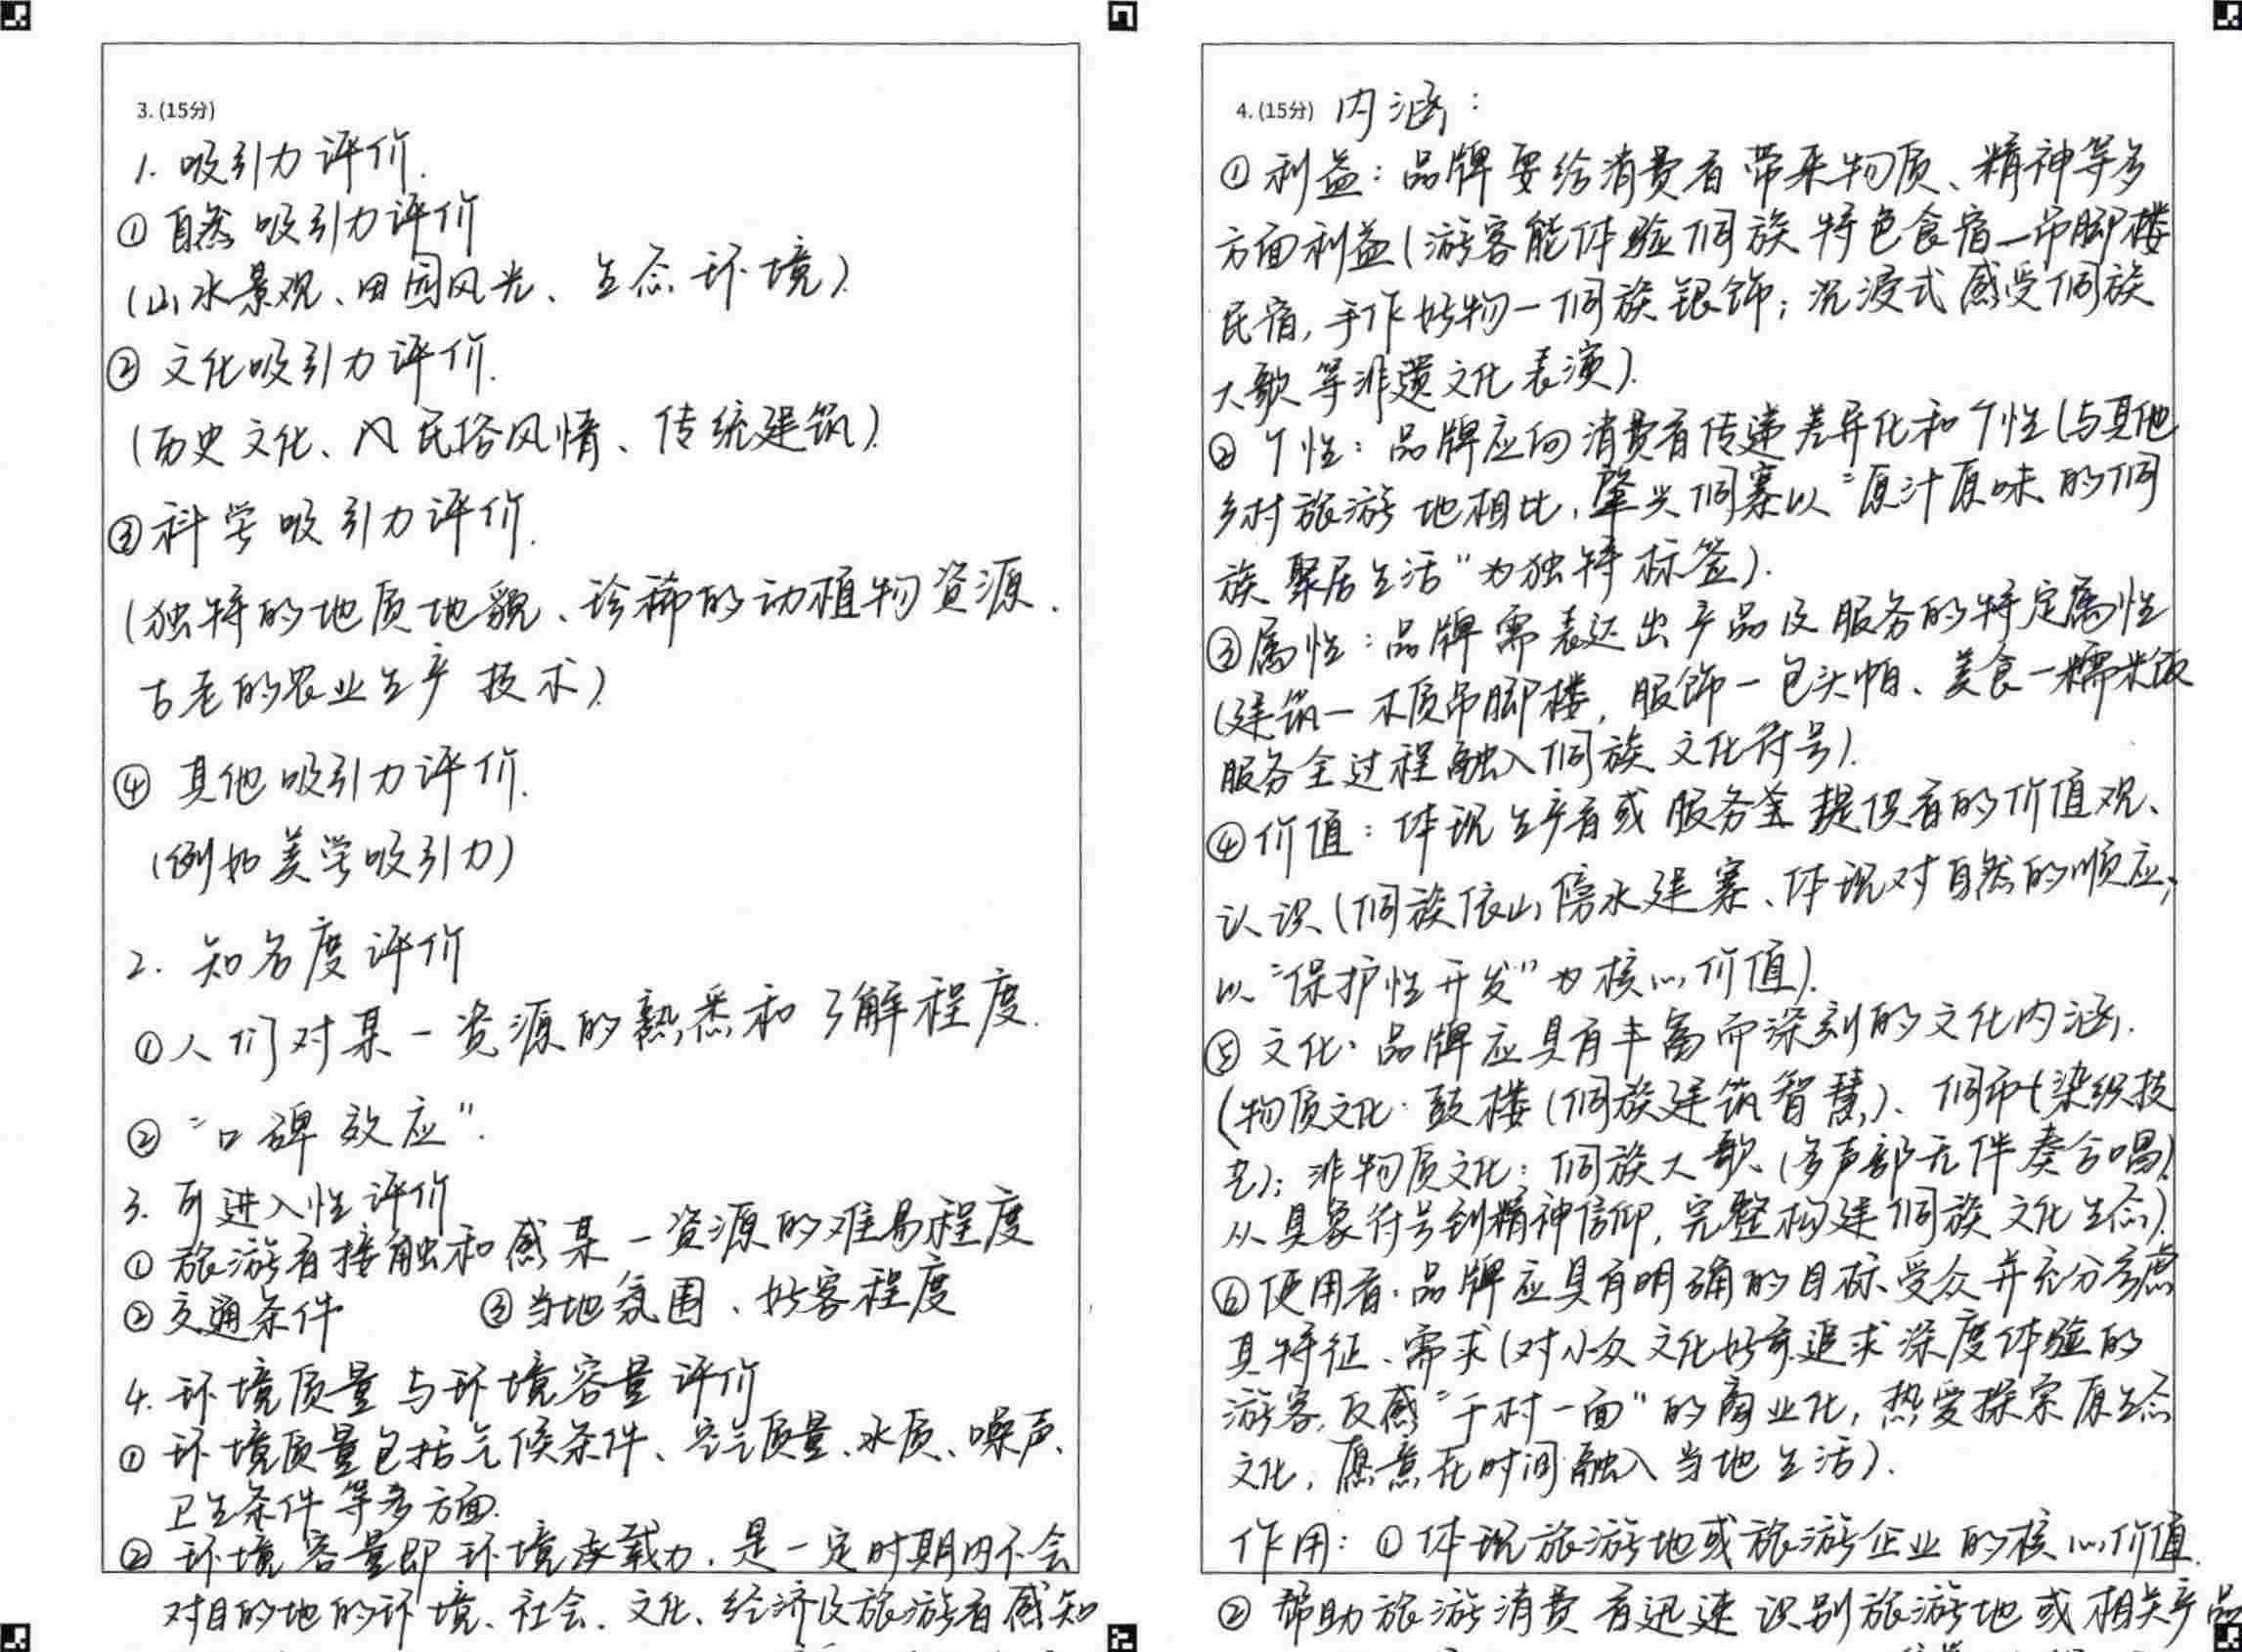 3. (15分)
1. 吸引力评价.
① 自然吸引力评价
(山水景观、田园风光、生态环境).
② 文化吸引力评价.
(历史文化、民俗风情、传统建筑).
③ 科学吸引力评价.
(独特的地质地貌、珍稀的动植物资源.
古老的农业生产技术).
④ 其他吸引力评价.
(例如美学吸引力)
2. 知名度评价
① 人们对某一资源的熟悉和了解程度.
② "口碑效应".
3. 可进入性评价
① 旅游者接触和感某一资源的难易程度
② 交通条件 ③ 当地氛围、好客程度
4. 环境质量与环境容量评价
① 环境质量包括气候条件、空气质量、水质、噪声、
卫生条件等多方面.
② 环境容量即环境承载力. 是一定时期内不会
对目的地的环境、社会、文化、经济及旅游者感知
4. (15分) 内涵:
① 利益: 品牌要给消费者带来物质、精神等多
方面利益(游客能体验侗族特色食宿—吊脚楼
民宿, 手作好物—侗族银饰; 沉浸式感受侗族
大歌等非遗文化表演).
② 个性: 品牌应向消费者传递差异化和个性(与其他
乡村旅游地相比, 肇兴侗寨以"原汁原味的侗
族聚居生活"为独特标签).
③ 属性: 品牌需表达出产品及服务的特定属性
(建筑—木质吊脚楼, 服饰—包头帕、美食—糯米饭
服务全过程融入侗族文化符号).
④ 价值: 体现生产者或服务提供者的价值观、
认识(侗族依山傍水建寨、体现对自然的顺应,
以"保护性开发"为核心价值).
⑤ 文化: 品牌应具有丰富而深刻的文化内涵.
(物质文化: 鼓楼(侗族建筑智慧)、侗布(染织技
艺); 非物质文化: 侗族大歌(多声部无伴奏合唱)
从具象符号到精神信仰, 完整构建侗族文化生态).
⑥ 使用者: 品牌应具有明确的目标受众并充分考虑
其特征、需求(对小众文化好奇追求深度体验的
游客, 反感"千村一面"的商业化, 热爱探索原生态
文化, 愿意花时间融入当地生活).
作用: ① 体现旅游地或旅游企业的核心价值.
② 帮助旅游消费者迅速识别旅游地或相关产品